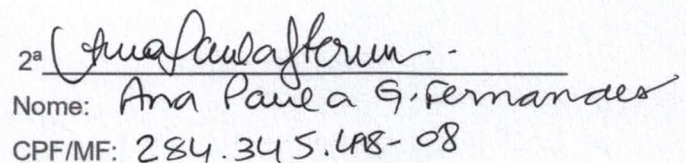 2ª
Nome: Ana Paula G. Fernandes
CPF/MF: 284.345.